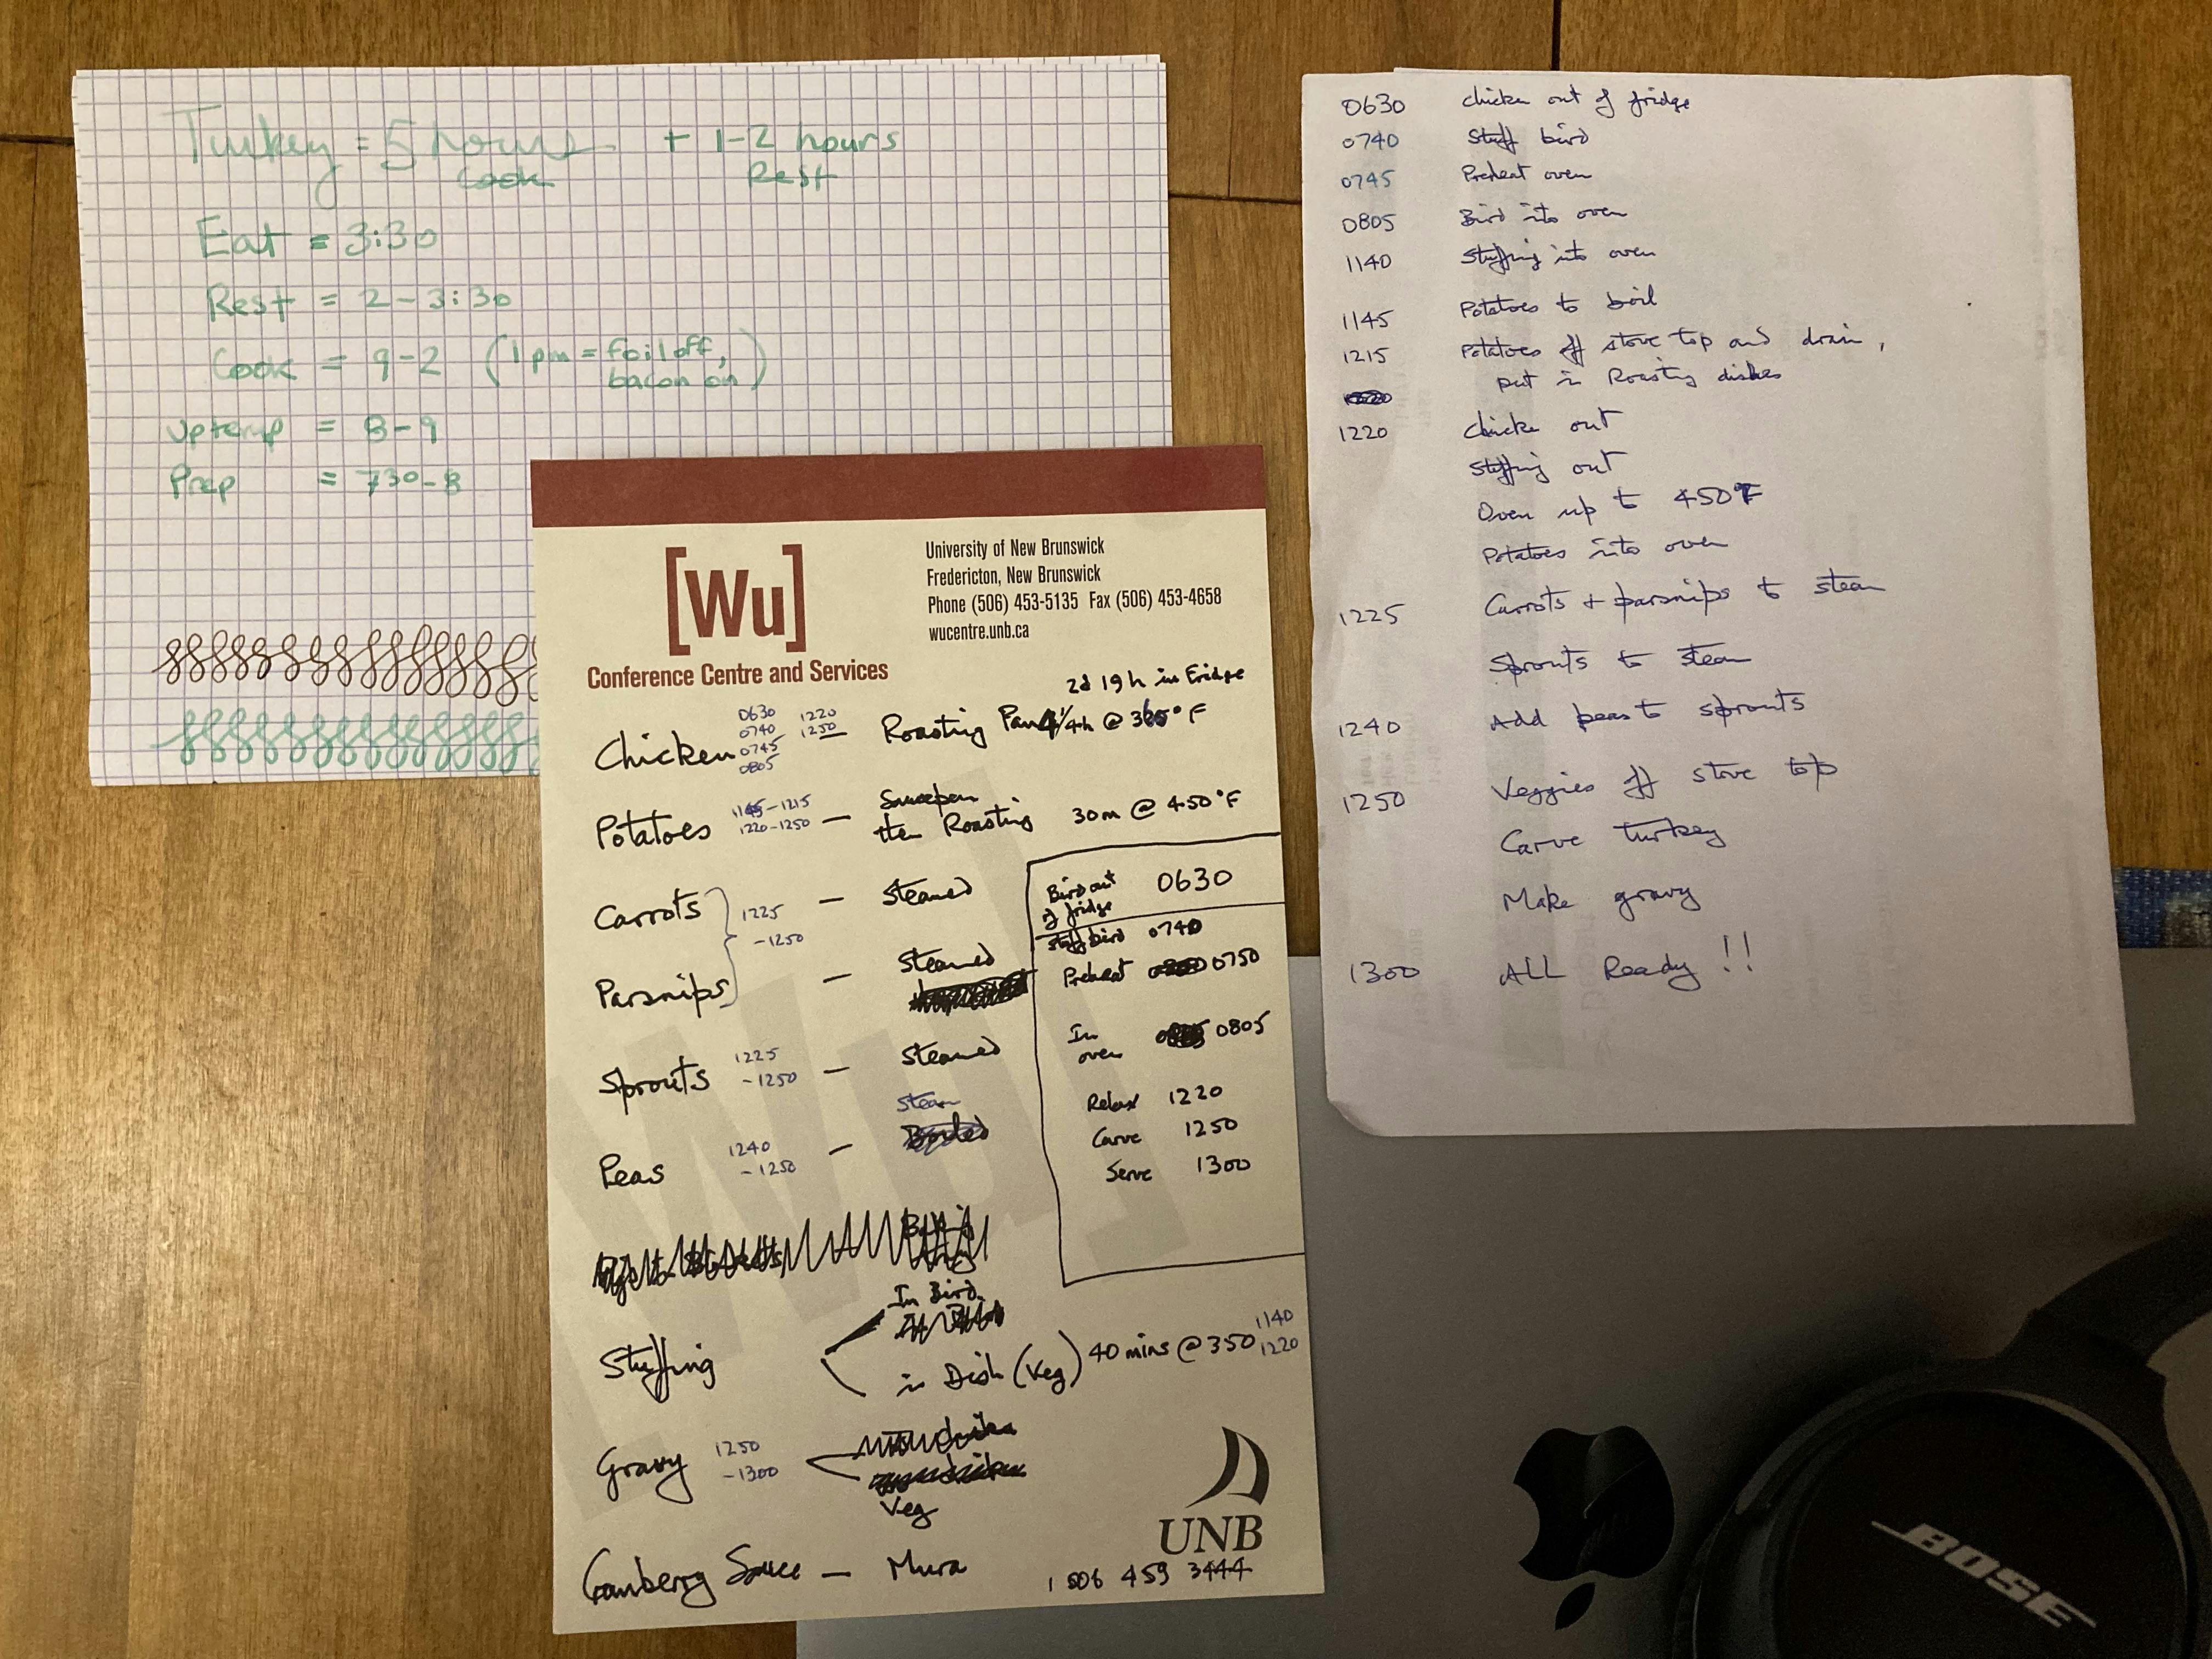 Turkey = 5 hours + 1-2 hours
Cook Rest
Eat = 3:30
Rest = 2-3:30
Cook = 9-2 (1pm = foil off,
bacon on)
Uptemp = 8-9
Prep = 730-8
[Wu]
Conference Centre and Services
University of New Brunswick
Fredericton, New Brunswick
Phone (506) 453-5135 Fax (506) 453-4658
wucentre.unb.ca
2d 19h in Fridge
Chicken 0630 0740 0745 0805 1220 1250 — Roasting Pan 4 1/4h @ °F
Potatoes 1145-1215 1220-1250 — Saucepan then Roasting 30m @ 450°F
Carrots 1225 -1250 — Steamed
Parsnips — Steamed
Sprouts 1225 -1250 — Steamed
Peas 1240 -1250 — Steam
Stuffing In Bird
in Dish (Veg) 40 mins @ 350 1140 1220
Gravy 1250 -1300
Veg
Cranberry Sauce — Mura
Bird out of fridge 0630
Stuff bird 0740
Preheat 0750
In oven 0805
Relax 1220
Carve 1250
Serve 1300
UNB
1 506 459 3444
0630 chicken out of fridge
0740 Stuff bird
0745 Preheat oven
0805 Bird into oven
1140 Stuffing into oven
1145 Potatoes to boil
1215 Potatoes off stove top and drain,
put in Roasting dishes
1220 Chicken out
Stuffing out
Oven up to 450°F
Potatoes into oven
1225 Carrots + parsnips to steam
Sprouts to steam
1240 Add peas to sprouts
1250 Veggies off stove top
Carve turkey
Make gravy
1300 ALL Ready !!
BOSE